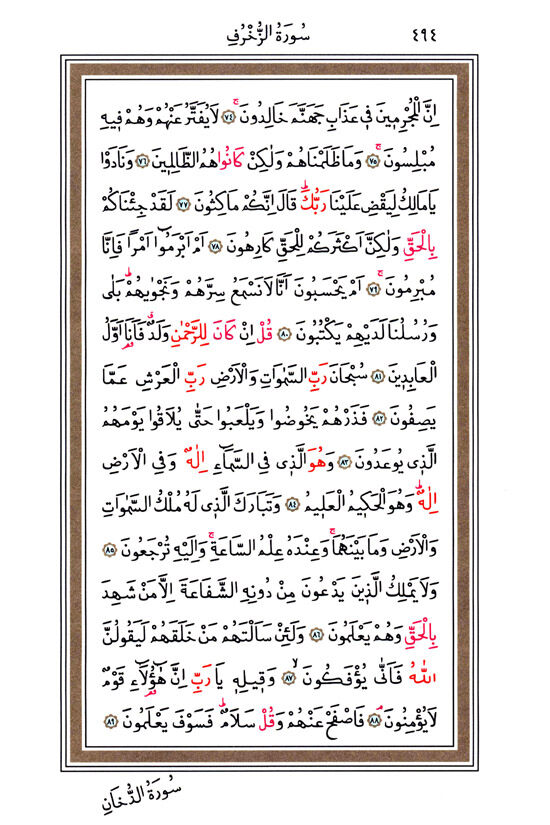 سُورَةُ الزُّخْرُفِ ٤٩٤
اِنَّ الْمُجْرِم۪ينَ ف۪ي عَذَابِ جَهَنَّمَ خَالِدُونَۚ ﴿٧٤﴾ لَا يُفَتَّرُ عَنْهُمْ وَهُمْ ف۪يهِ
مُبْلِسُونَۚ ﴿٧٥﴾ وَمَا ظَلَمْنَاهُمْ وَلٰكِنْ كَانُوا هُمُ الظَّالِم۪ينَ ﴿٧٦﴾ وَنَادَوْا
يَا مَالِكُ لِيَقْضِ عَلَيْنَا رَبُّكَۜ قَالَ اِنَّكُمْ مَاكِثُونَ ﴿٧٧﴾ لَقَدْ جِئْنَاكُمْ
بِالْحَقِّ وَلٰكِنَّ اَكْثَرَكُمْ لِلْحَقِّ كَارِهُونَ ﴿٧٨﴾ اَمْ اَبْرَمُٓوا اَمْرًا فَاِنَّا
مُبْرِمُونَۚ ﴿٧٩﴾ اَمْ يَحْسَبُونَ اَنَّا لَا نَسْمَعُ سِرَّهُمْ وَنَجْوٰيهُمْۜ بَلٰى
وَرُسُلُنَا لَدَيْهِمْ يَكْتُبُونَ ﴿٨٠﴾ قُلْ اِنْ كَانَ لِلرَّحْمٰنِ وَلَدٌۗ فَاَنَا۬ اَوَّلُ
الْعَابِد۪ينَ ﴿٨١﴾ سُبْحَانَ رَبِّ السَّمٰوَاتِ وَالْاَرْضِ رَبِّ الْعَرْشِ عَمَّا
يَصِفُونَ ﴿٨٢﴾ فَذَرْهُمْ يَخُوضُوا وَيَلْعَبُوا حَتّٰى يُلَاقُوا يَوْمَهُمُ
الَّذ۪ي يُوعَدُونَ ﴿٨٣﴾ وَهُوَ الَّذ۪ي فِي السَّمَٓاءِ اِلٰهٌ وَفِي الْاَرْضِ
اِلٰهٌۜ وَهُوَ الْحَك۪يمُ الْعَل۪يمُ ﴿٨٤﴾ وَتَبَارَكَ الَّذ۪ي لَهُ مُلْكُ السَّمٰوَاتِ
وَالْاَرْضِ وَمَا بَيْنَهُمَاۚ وَعِنْدَهُ عِلْمُ السَّاعَةِۚ وَاِلَيْهِ تُرْجَعُونَ ﴿٨٥﴾
وَلَا يَمْلِكُ الَّذ۪ينَ يَدْعُونَ مِنْ دُونِهِ الشَّفَاعَةَ اِلَّا مَنْ شَهِدَ
بِالْحَقِّ وَهُمْ يَعْلَمُونَ ﴿٨٦﴾ وَلَئِنْ سَاَلْتَهُمْ مَنْ خَلَقَهُمْ لَيَقُولُنَّ
اللّٰهُ فَاَنّٰى يُؤْفَكُونَۙ ﴿٨٧﴾ وَق۪يلِه۪ يَا رَبِّ اِنَّ هٰٓؤُ۬لَٓاءِ قَوْمٌ
لَا يُؤْمِنُونَۢ ﴿٨٨﴾ فَاصْفَحْ عَنْهُمْ وَقُلْ سَلَامٌۜ فَسَوْفَ يَعْلَمُونَ ﴿٨٩﴾
سُورَةُ الدُّخَانِ